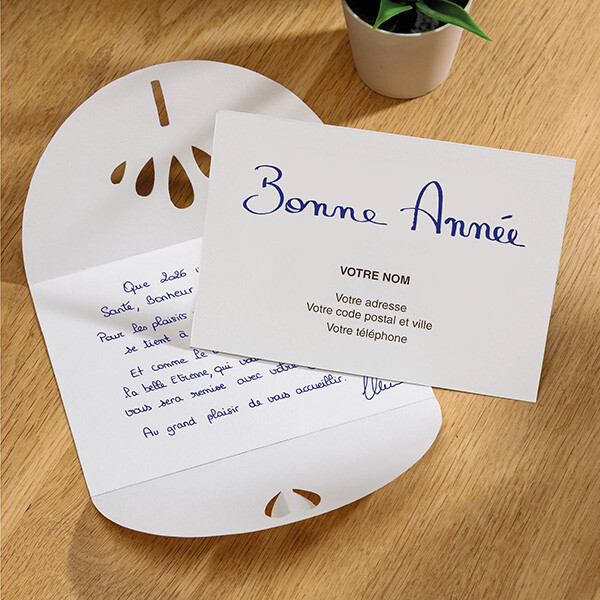 Bonne Année
VOTRE NOM
Votre adresse
Votre code postal et ville
Votre téléphone
Que 2026
Santé, Bonheur
Pour les plaisirs
se tient à
Et comme le
la belle Etienne, qui
vous sera remise avec votre
Au grand plaisir de vous accueillir.